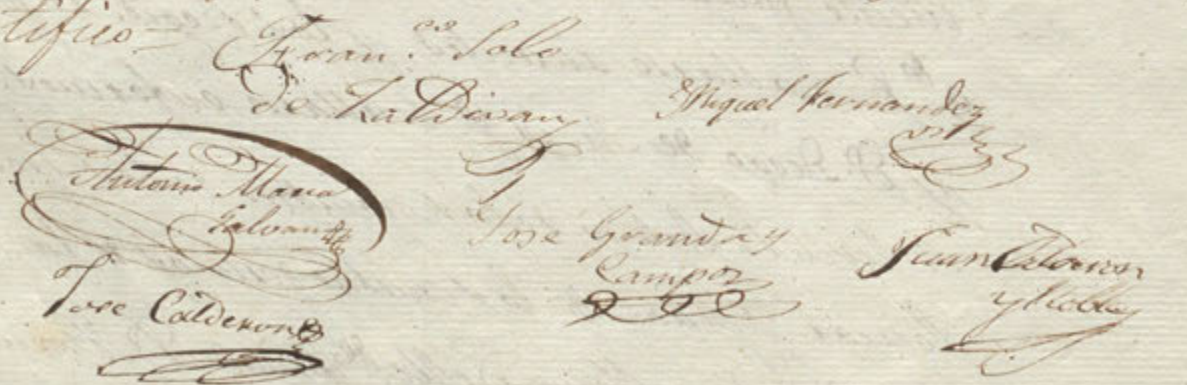 tifico= Fran.co Solo
de Zaldivar
Miguel Fernandez
Antonio Maria
Galvan
Jose Granda y
Campoz
Juan Calderon
y
Jose Calderon